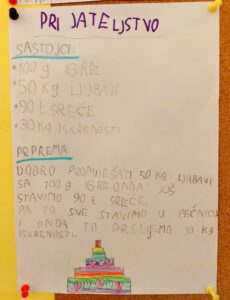 PRIJATELJSTVO
SASTOJCI:
• 100 g IGRE
• 50 kg LJUBAVI
• 90 t SREĆE
• 30 kg ISKRENOSTI
PRPREMA:
DOBRO PROMNJEŠATI 50 kg LJUBAVI
SA 100 g IGRE. ONDA JOŠ
STAVIMO 90 t SREĆE.
PA TO SVE STAVIMO U PEĆNICU
I ONDA TO PRELIJMO 30 kg
ISKRENOSTI.